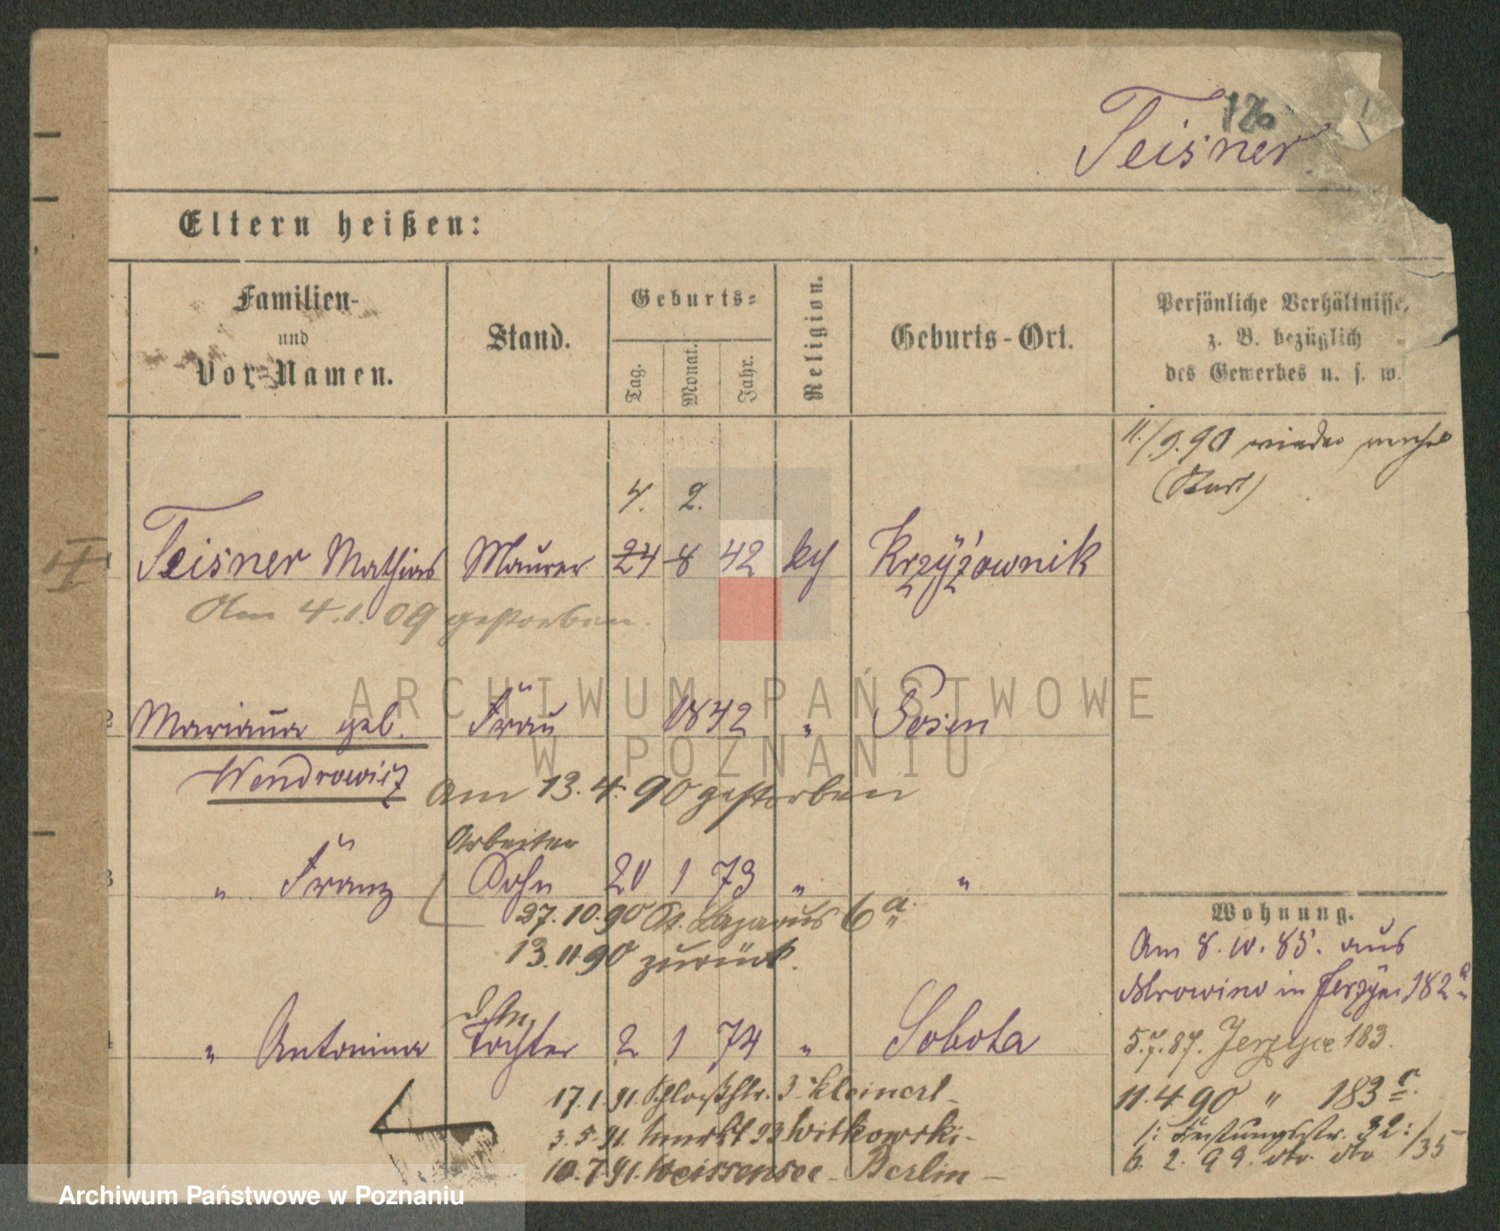 126
Teisner
Eltern heißen:
Familien-
und
Vor-Namen.
Stand.
Geburts-
Tag.
Monat.
Jahr.
Religion.
Geburts-Ort.
Persönliche Verhältnisse,
z. B. bezüglich
des Gewerbes u. s. w.
11./9.90 wieder
4. 2.
1 Teisner Mathias Maurer 24 8 42 kth Krzyżownik
Am 4.1.09 gestorben.
2 Marianna geb. Frau 1842 " Posen
Wendrowicz
Am 13.4.90 gestorben
Arbeiter
3 " Franz Sohn 20 1 73 " "
27.10.90 St. Lazarus 6a.
13.11.90 zurück.
4 " Antonina Tochter 2 1 74 " Sobota
17.1.91 Schloßstr. 3 Kleinert
3.5.91. Markt 93 Witkowski
10.7.91. Weissensee - Berlin
Wohnung.
Am 8.10.85. aus
Mrowino in Jerzyce 182a
5.7.87. Jerzyce 183.
11.4.90 " 183c.
6.2.99. dto. dto 135
ARCHIWUM PAŃSTWOWE
W POZNANIU
Archiwum Państwowe w Poznaniu